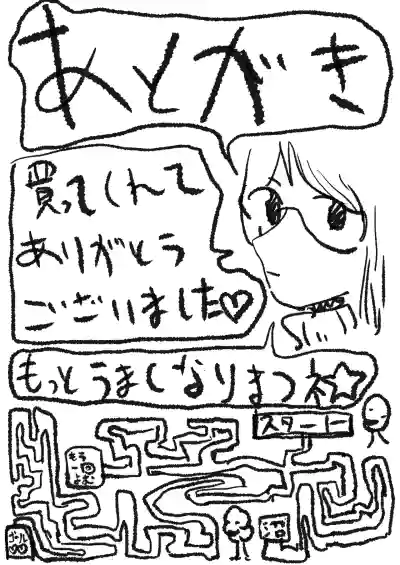 あとがき
買ってくれて
ありがとう
ございました♡
もっとうまくなりまつネ☆
スタート
もう
一回
よむ
沼
ゴール
♡♡